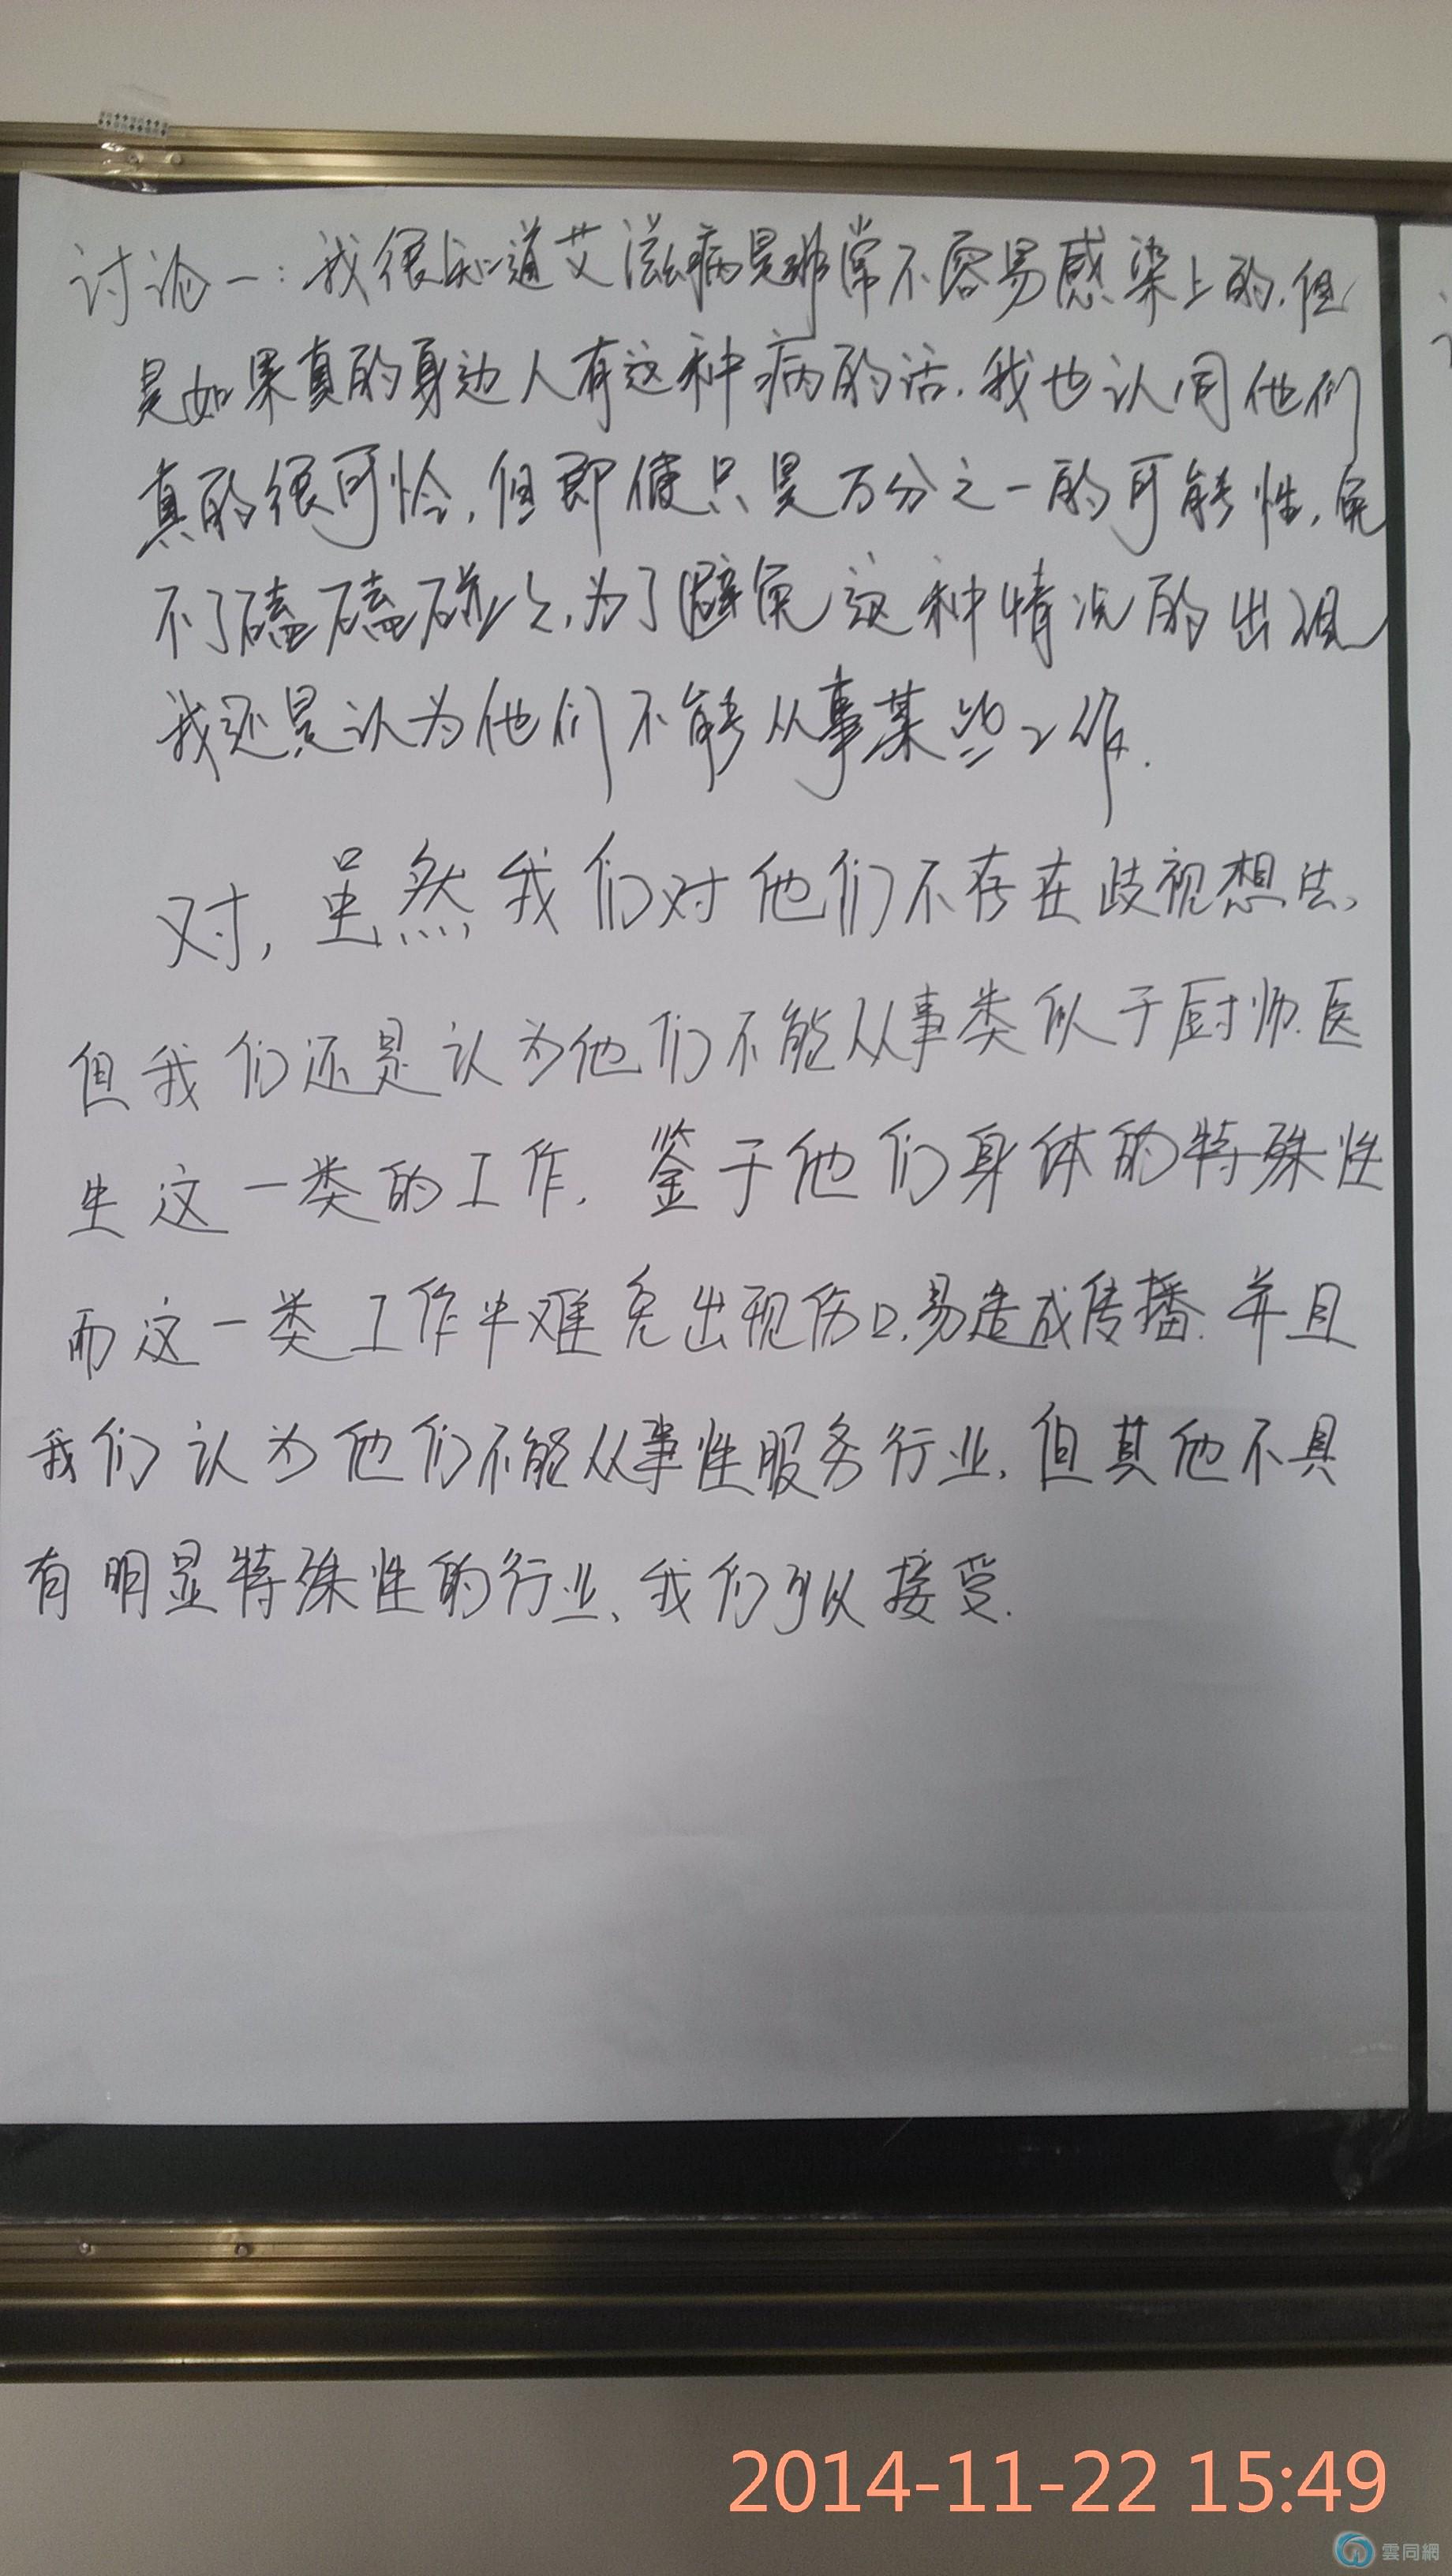 讨论一:我很知道艾滋病是非常不容易感染上的,但
是如果真的身边人有这种病的话,我也认同他们
真的很可怜,但即使只是万分之一的可能性,免
不了磕磕碰碰,为了避免这种情况的出现
我还是认为他们不能从事某些工作.
对,虽然我们对他们不存在歧视想法,
但我们还是认为他们不能从事类似于厨师.医
生这一类的工作.鉴于他们身体的特殊性
而这一类工作中难免出现伤口,易造成传播.并且
我们认为他们不能从事性服务行业.但其他不具
有明显特殊性的行业、我们可以接受.
2014-11-22 15:49
雲同網